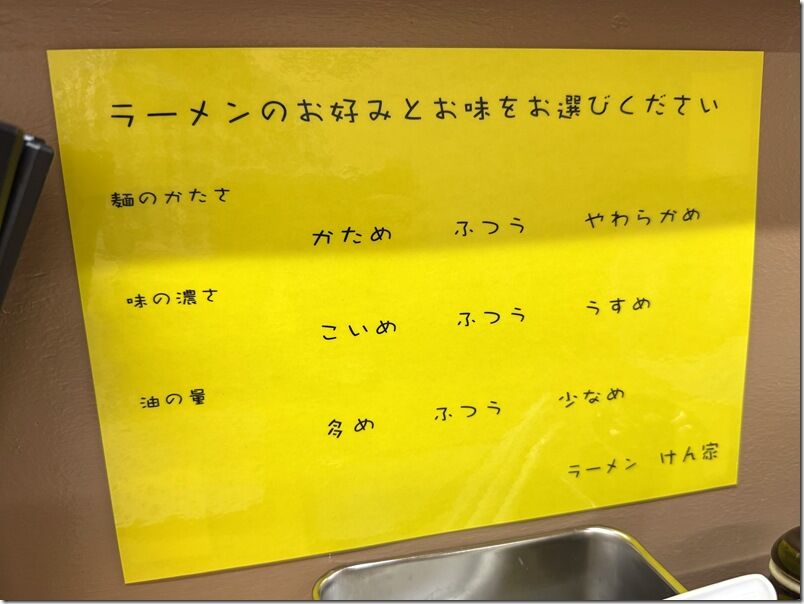 ラーメンのお好みとお味をお選びください
麺のかたさ
かため ふつう やわらかめ
味の濃さ
こいめ ふつう うすめ
油の量
多め ふつう 少なめ
ラーメン けん家